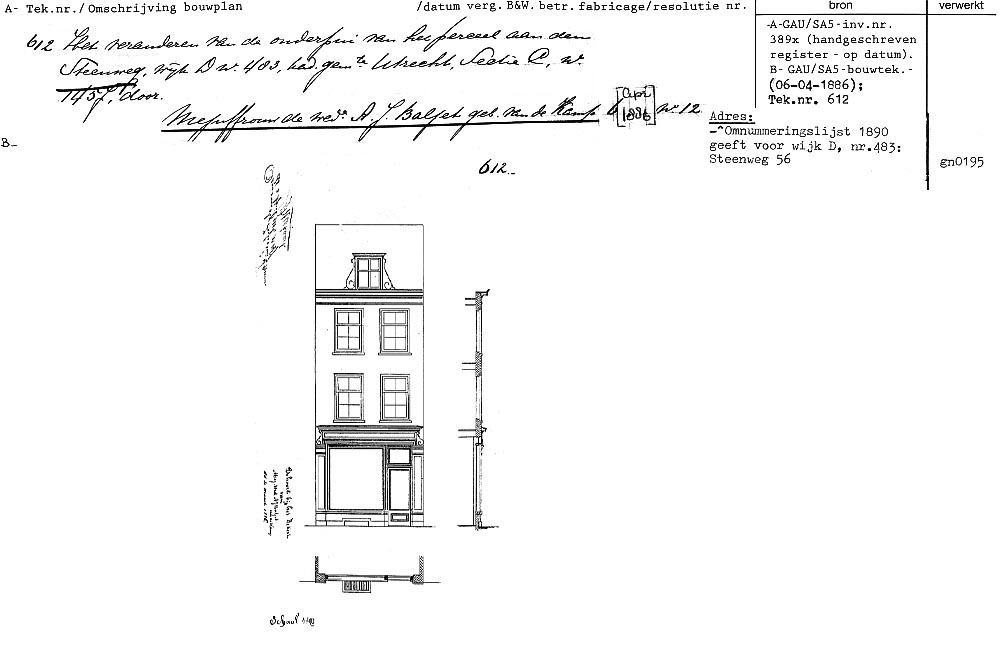 A- Tek.nr./Omschrijving bouwplan /datum verg. B&W. betr. fabricage/resolutie nr. bron verwerkt
612 Het veranderen van de onderpui van het perceel aan den
Steenweg, wijk D nr. 483, kad. gemte Utrecht, Sectie C, nr.
1457, door.
Mejuffrouw de wede. A. J. Balfet geb. van de Kamp 6 [Apr 1886] nr. 12
-A-GAU/SA5-inv.nr.
389x (handgeschreven
register - op datum).
B- GAU/SA5-bouwtek.-
(06-04-1886);
Tek.nr. 612
Adres:
-^Omnummeringslijst 1890
geeft voor wijk D, nr.483:
Steenweg 56
gn0195
B-
612.
Schaal